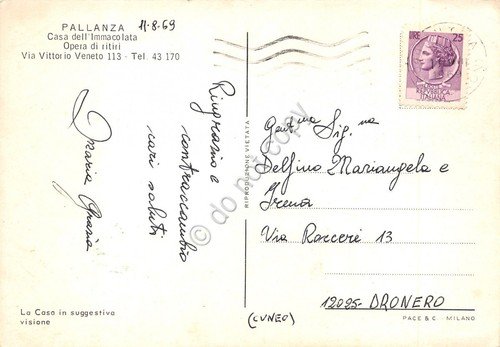 PALLANZA
11-8-69
Casa dell'Immacolata
Opera di ritiri
Via Vittorio Veneto 113 - Tel. 43 170
Ringrazio e
contraccambio
cari saluti
Maria Grazia
La Casa in suggestiva
visione
RIPRODUZIONE VIETATA
© do not copy
LIRE 25
Gent.ma Sig.na
Delfino Mariangela e
Irena
Via Roccere 13
12025 - DRONERO
(CUNEO)
PACE & C. - MILANO